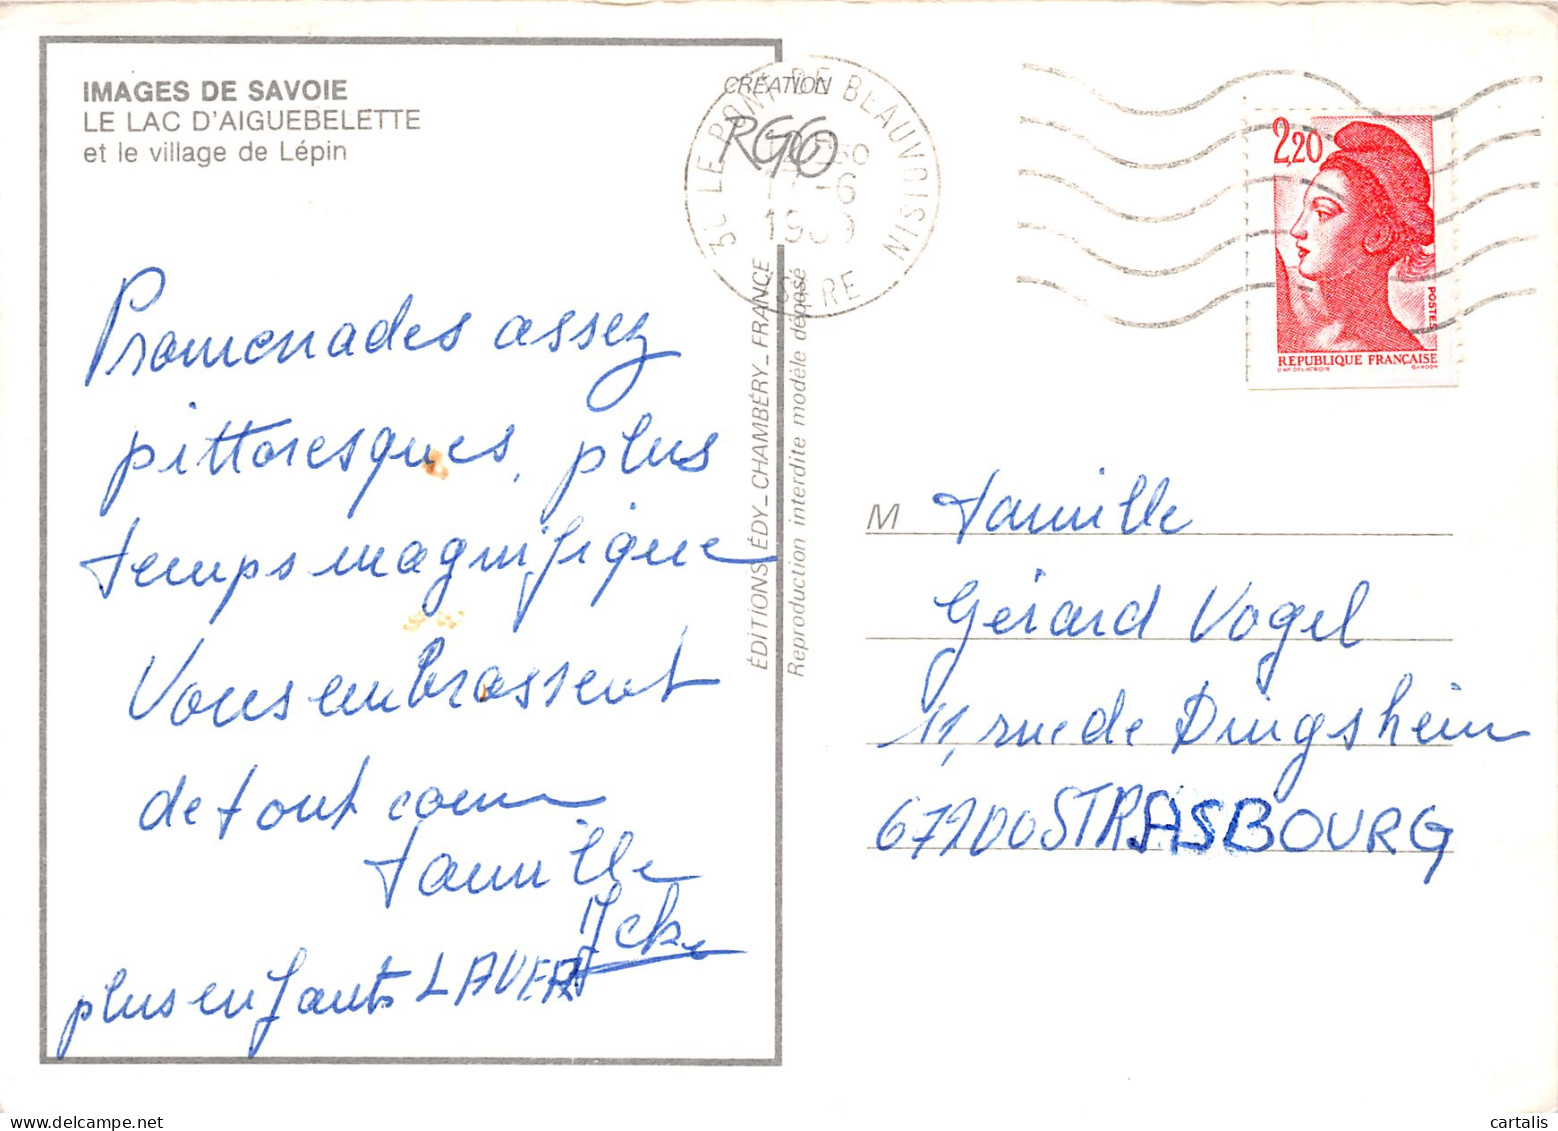 IMAGES DE SAVOIE
LE LAC D'AIGUEBELETTE
et le village de Lépin
Promenades assez
pittoresques, plus
temps magnifique
Vous embrassent
de tout coeur
famille
Icke
plus enfants LAUER
CRÉATION
RGG
ÉDITIONS ÉDY_CHAMBÉRY_FRANCE
Reproduction interdite modèle déposé
38 LE PONT DE BEAUVOISIN
-6
1989
ISERE
2,20
POSTES
REPUBLIQUE FRANÇAISE
D'AP. DELACROIX GANDON
M famille
Gérard Vogel
11, rue de Dingsheim
67200 STRASBOURG
cartalis